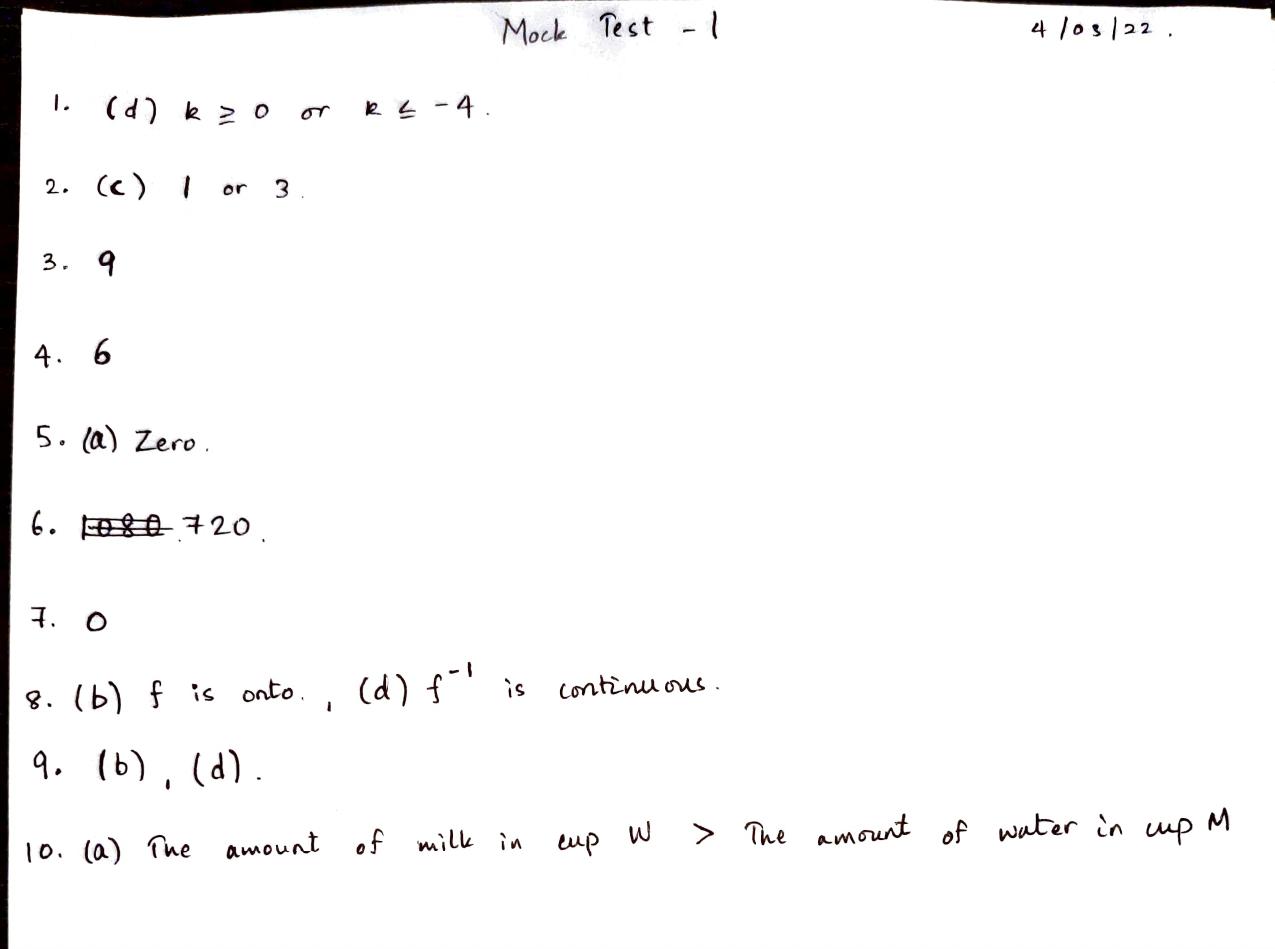 Mock Test - 1 4/03/22.
1. (d) k ≥ 0 or k ≤ -4.
2. (c) 1 or 3.
3. 9
4. 6
5. (a) Zero.
6. 1080 720.
7. 0
8. (b) f is onto., (d) f⁻¹ is continuous.
9. (b), (d).
10. (a) The amount of milk in cup W > The amount of water in cup M